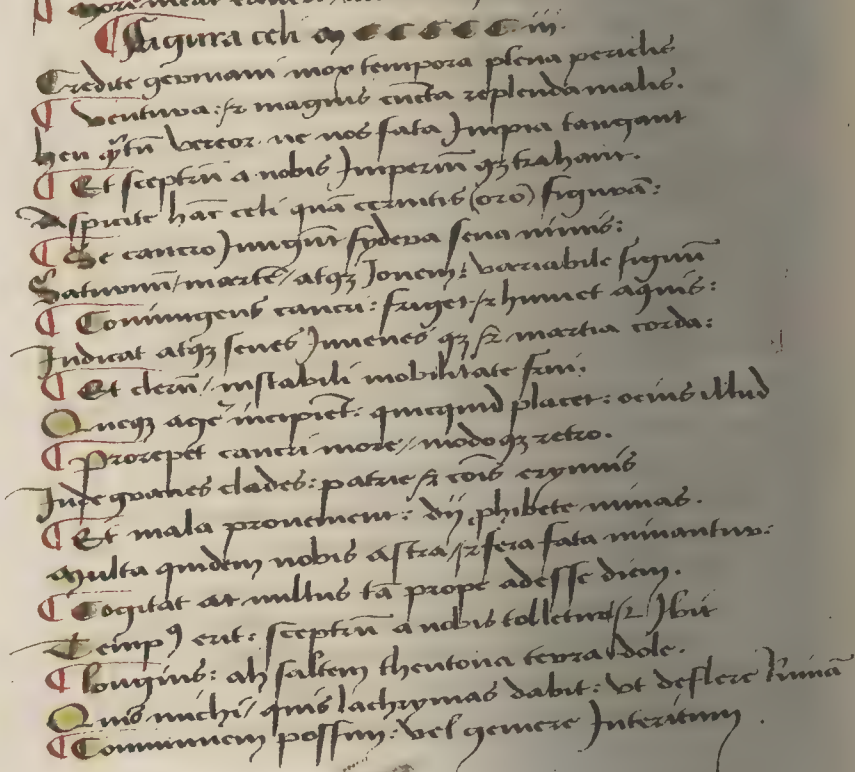 more
¶ Figura celi M C C C C C iii.
Credite germani mox tempora plena periclis
¶ Ventura: & magnis cūcta replenda malis.
heu q̄tū vereor ne nos fata Impia tangant
¶ Et sceptrū a nobis Imperiū qȝ trahant.
Aspicite hāc celi quā cernitis (oro) figurā:
¶ Se cancro Iungūt sydera sena nimis:
Saturnū/ martē/ atqȝ Iouem: variabile signū
¶ Coniungens cancri: friget & humet aquis:
Indicat atqȝ senes Iuuenes qȝ & martia corda:
¶ Et clerū/ instabili mobilitate frui.
Queqȝ agē incipiet: quicquid placet: ocius illud
¶ Prorepet cancri more/ modoqȝ retro.
Inde graues clades: patrie & cōis erynnis
¶ Et mala prouenient: dij phibete minas.
Multa quidem nobis astra/ & fera fata minantur:
¶ Cogitat at nullus tā prope adesse diem.
Tempꝰ erit: sceptrū a nobis tolletur & Ibit
¶ longius: ah saltem theutona terra dole.
Quis michi/ quis lachrymas dabit: vt deflere Ruinā
¶ Communem possim: vel gemere Interitum.